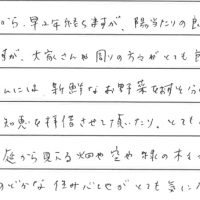 から、早二年経ちますが、陽当たりの良
すが、大家さんや周りの方々がとても良
んには、新鮮なお野菜をおすそ分
知恵を拝借させて頂いたり。とても
庭から見える畑や空や緑の木々
のどかな住み心地がとても気に入